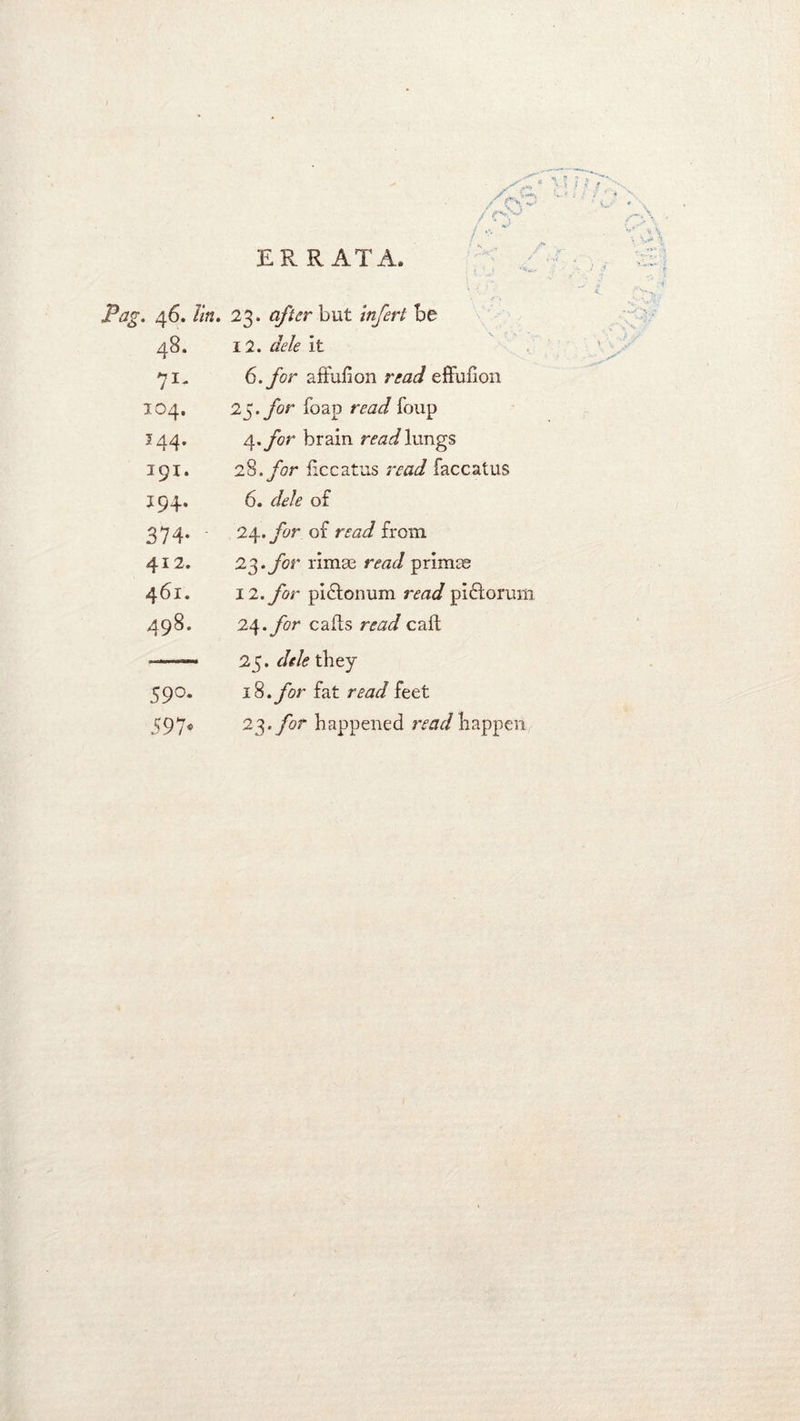 ERRATA.
Pag. 46. lin. 23. after but inſert be
48. 12. dele it
71. 6. for affuſion read effuſion
104. 25. for ſoap read ſoup
144. 4. for brain read lungs
191. 28. for ſiccatus read ſaccatus
194. 6. dele of
374. 24. for of read from
412. 23. for rimæ read primæ
461. 12. for pictonum read pictorum
498. 24. for caſts read caſt
—— 25. dele they
590. 18. for fat read feet
597. 23. for happened read happen